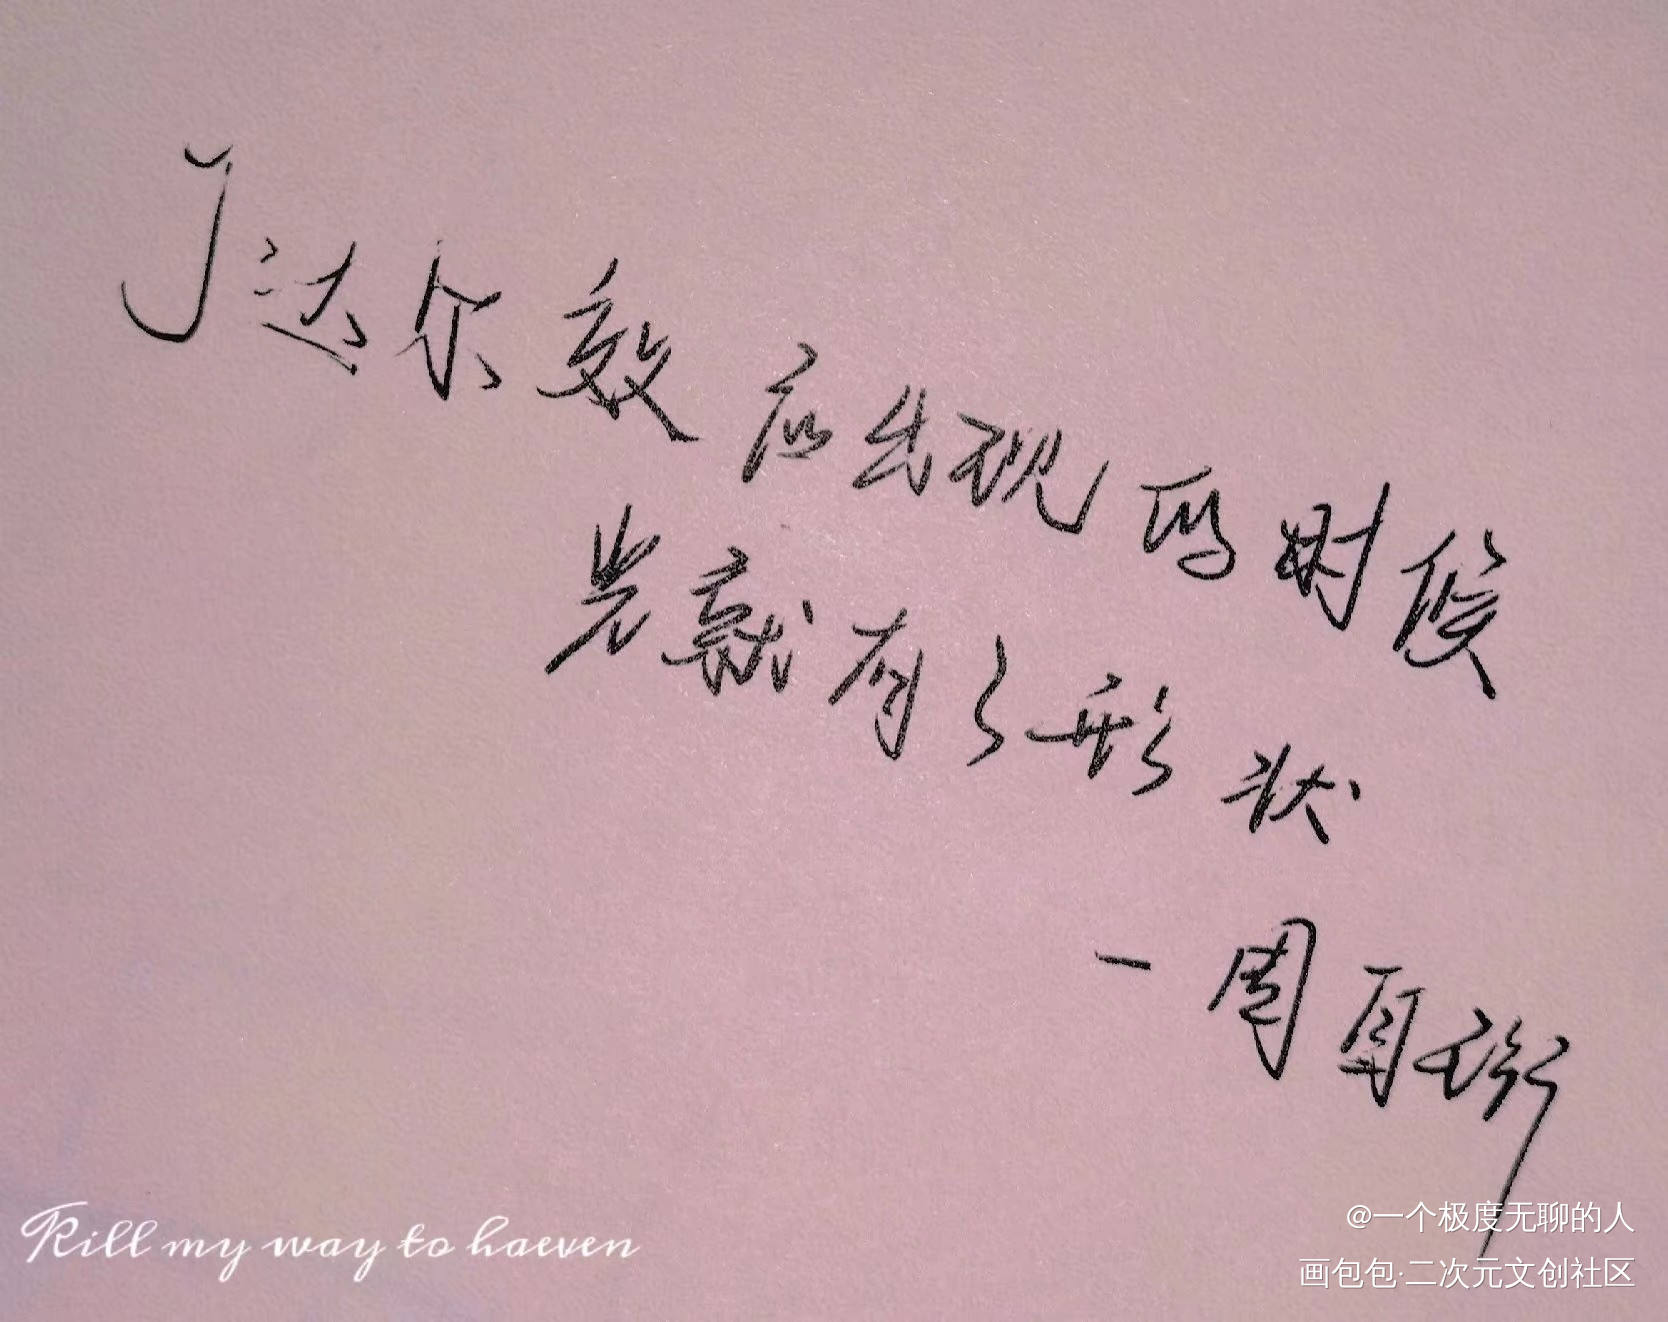 丁达尔效应出现的时候
光就有了形状
一周夏珩
Kill my way to haeven
@一个极度无聊的人
画包包·二次元文创社区